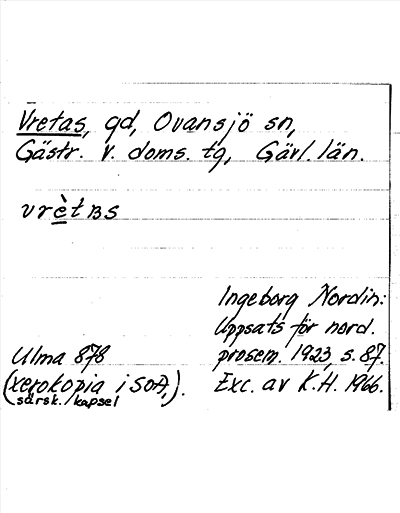 Vretas, gd, Ovansjö sn,
Gästr. v. doms. tg, Gävl. län.
vrèt ʙs
Ingeborg Nordin:
Uppsats för nord.
prosem. 1923, s. 87.
Exc. av K.H. 1966.
Ulma 878
(xerokopia i SOA,).
särsk. kapsel